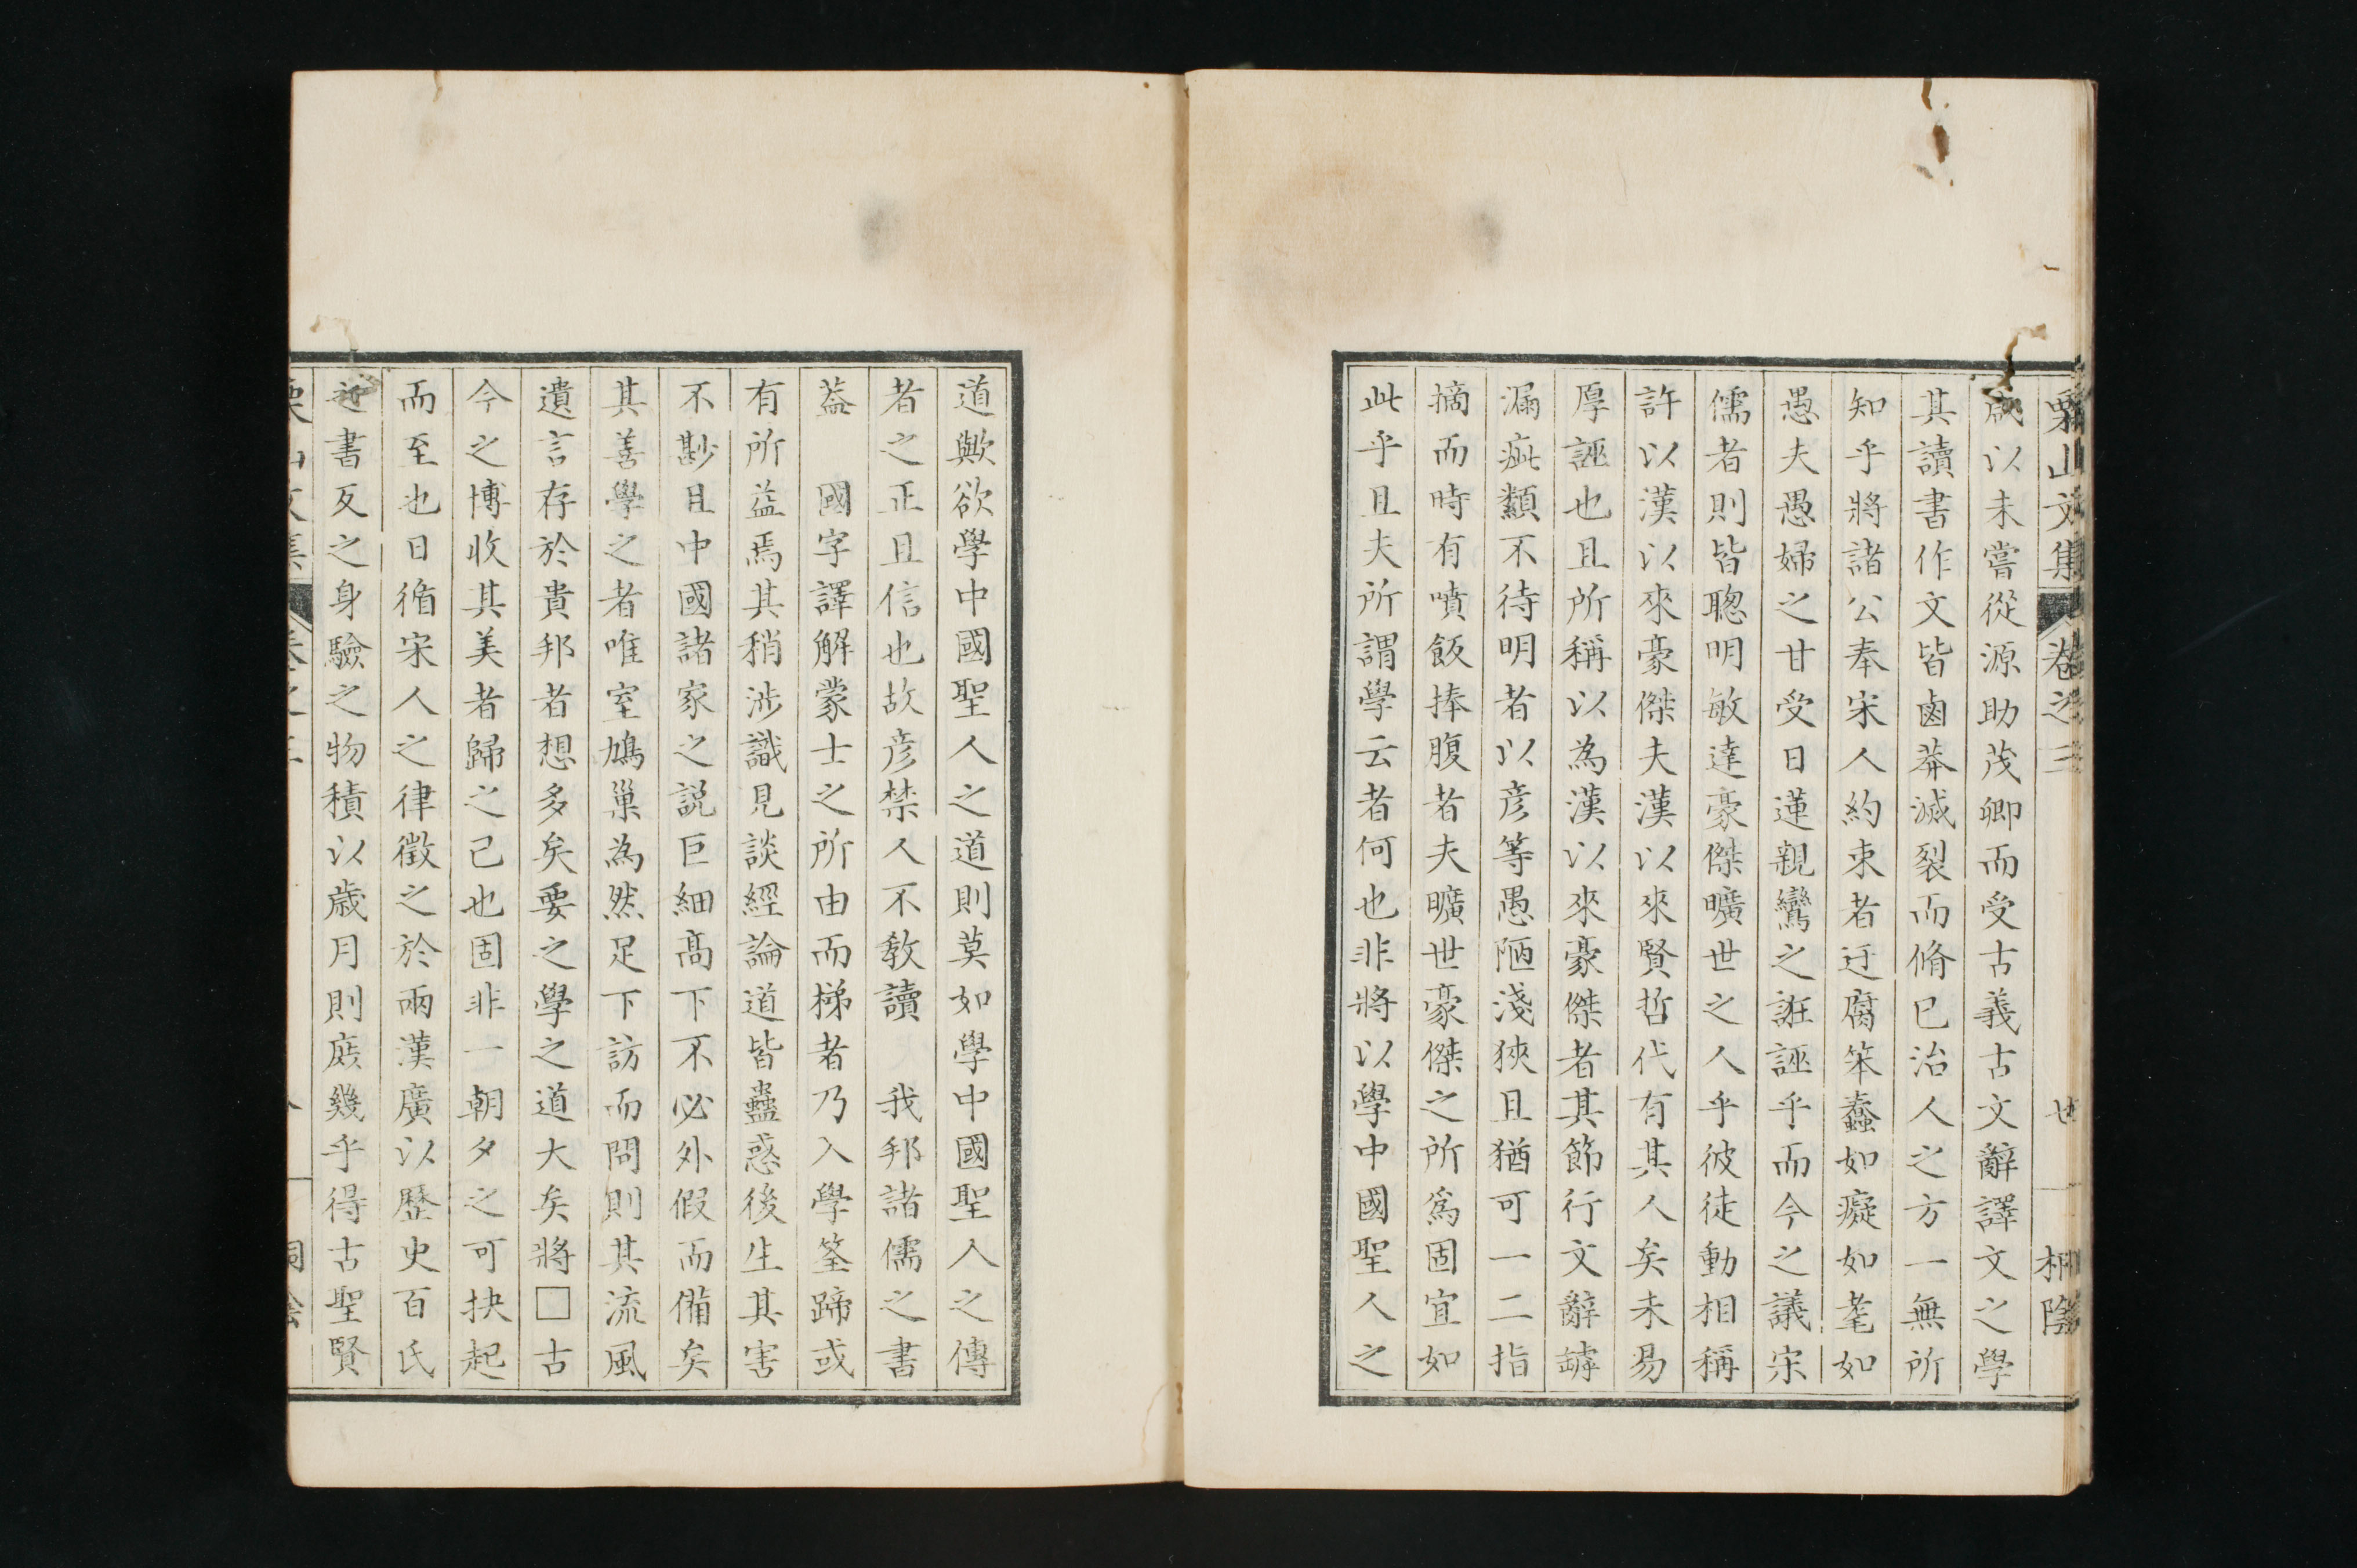 栗山文集 卷之三 廿 桐陰
歲以未嘗從源助茂卿而受古義古文辭譯文之學
其讀書作文皆鹵莽滅裂而脩已治人之方一無所
知乎將諸公奉宋人約束者迂腐笨蠢如癡如耄如
愚夫愚婦之甘受日蓮親鸞之誑誣乎而今之議宋
儒者則皆聰明敏達豪傑曠世之人乎彼徒動相稱
許以漢以來豪傑夫漢以來賢哲代有其人矣未易
厚誣也且所稱以為漢以來豪傑者其節行文辭罅
漏疵纇不待明者以彦等愚陋淺狹且猶可一二指
摘而時有噴飯捧腹者夫曠世豪傑之所爲固宜如
此乎且夫所謂學云者何也非將以學中國聖人之
道歟欲學中國聖人之道則莫如學中國聖人之傳
者之正且信也故彦禁人不教讀 我邦諸儒之書
蓋 國字譯解蒙士之所由而梯者乃入學筌蹄或
有所益焉其稍涉識見談經論道皆蠱惑後生其害
不尠且中國諸家之説巨細高下不必外假而備矣
其善學之者唯室鳩巢為然足下訪而問則其流風
遺言存於貴邦者想多矣要之學之道大矣將□古
今之博收其美者歸之己也固非一朝夕之可抉起
而至也日循宋人之律徵之於兩漢廣以歷史百氏
之書反之身驗之物積以歲月則庶幾乎得古聖賢
栗山文集